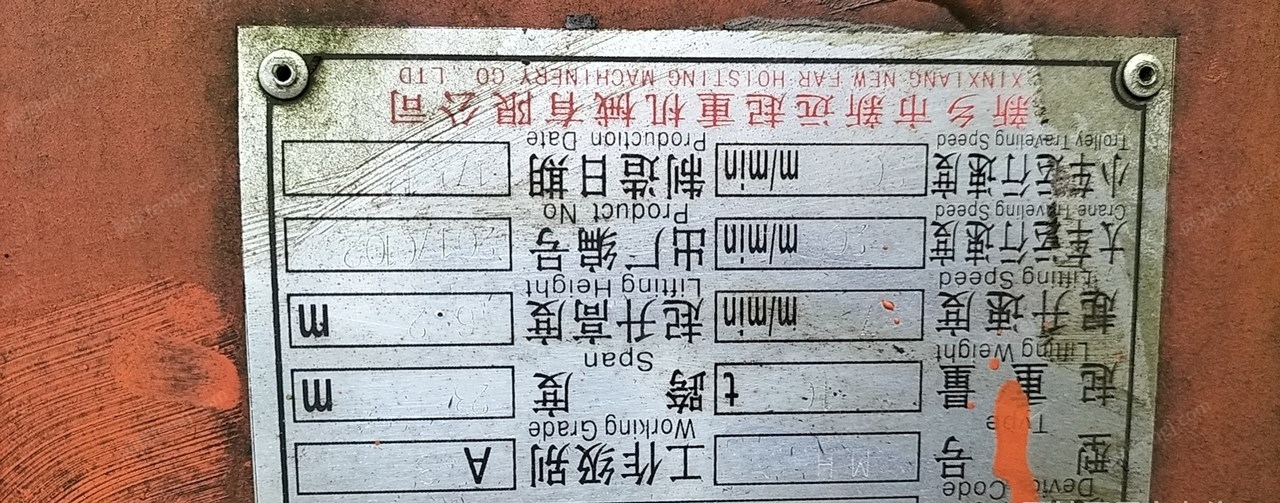 Device Code
型 号 MH 工作级别 A
Type Working Grade
起重量 t 跨 度 m
Lifting Weight Span
起升速度 m/min 起升高度 m
Lifting Speed Lifting Height
大车运行速度 m/min 出厂编号
Crane Traveling Speed Product No
小车运行速度 m/min 制造日期
Trolley Traveling Speed Production Date
新乡市新远起重机械有限公司
XINXIANG NEW FAR HOISTING MACHINERY CO., LTD